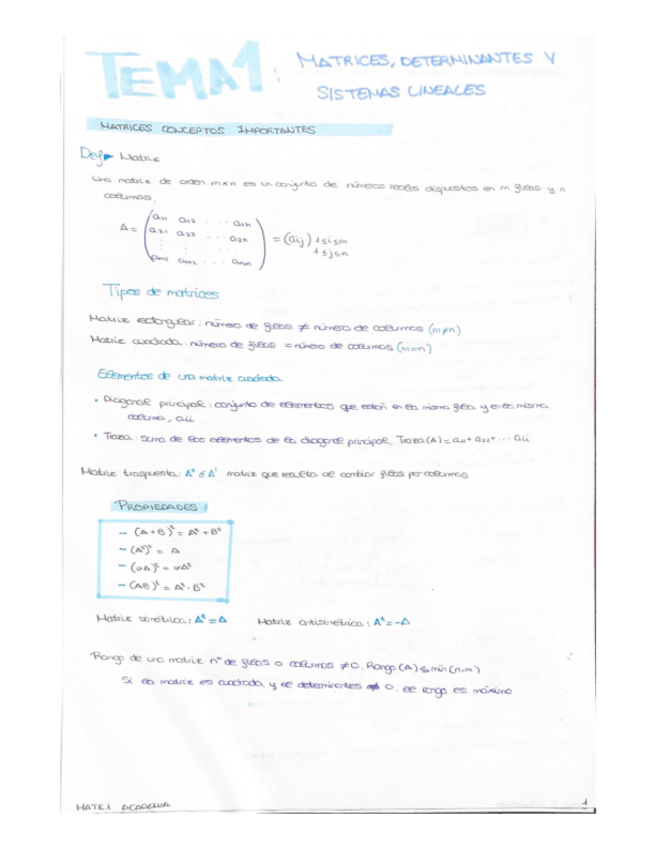 TEMA 1: MATRICES, DETERMINANTES Y
SISTEMAS LINEALES
MATRICES CONCEPTOS IMPORTANTES
Def▶ Matriz
Una matriz de orden m×n es un conjunto de números reales dispuestos en m filas y n
columnas.
A = (a11 a12 ... a1n
a21 a22 ... a2n
⋮ ⋮ ⋮
am1 am2 ... amn) = (aij) 1≤i≤m
1≤j≤n
Tipos de matrices
Matriz rectangular: número de filas ≠ número de columnas (m≠n)
Matriz cuadrada: número de filas = número de columnas (m=n)
Elementos de una matriz cuadrada
• Diagonal principal: conjunto de elementos que están en la misma fila y en la misma
columna, aii
• Traza: suma de los elementos de la diagonal principal, Traza(A) = a11 + a22 + ... aii
Matriz traspuesta: Aᵗ ó A' matriz que resulta de cambiar filas por columnas
PROPIEDADES:
- (A+B)ᵗ = Aᵗ + Bᵗ
- (Aᵗ)ᵗ = A
- (αA)ᵗ = αAᵗ
- (AB)ᵗ = Aᵗ · Bᵗ
Matriz simétrica: Aᵗ = A Matriz antisimétrica: Aᵗ = -A
Rango de una matriz: nº de filas o columnas ≠ 0. Rango (A) ≤ min (n,m)
Si la matriz es cuadrada y el determinantes ≠ 0, el rango es máximo
MATE 1 ACADEMIA 1